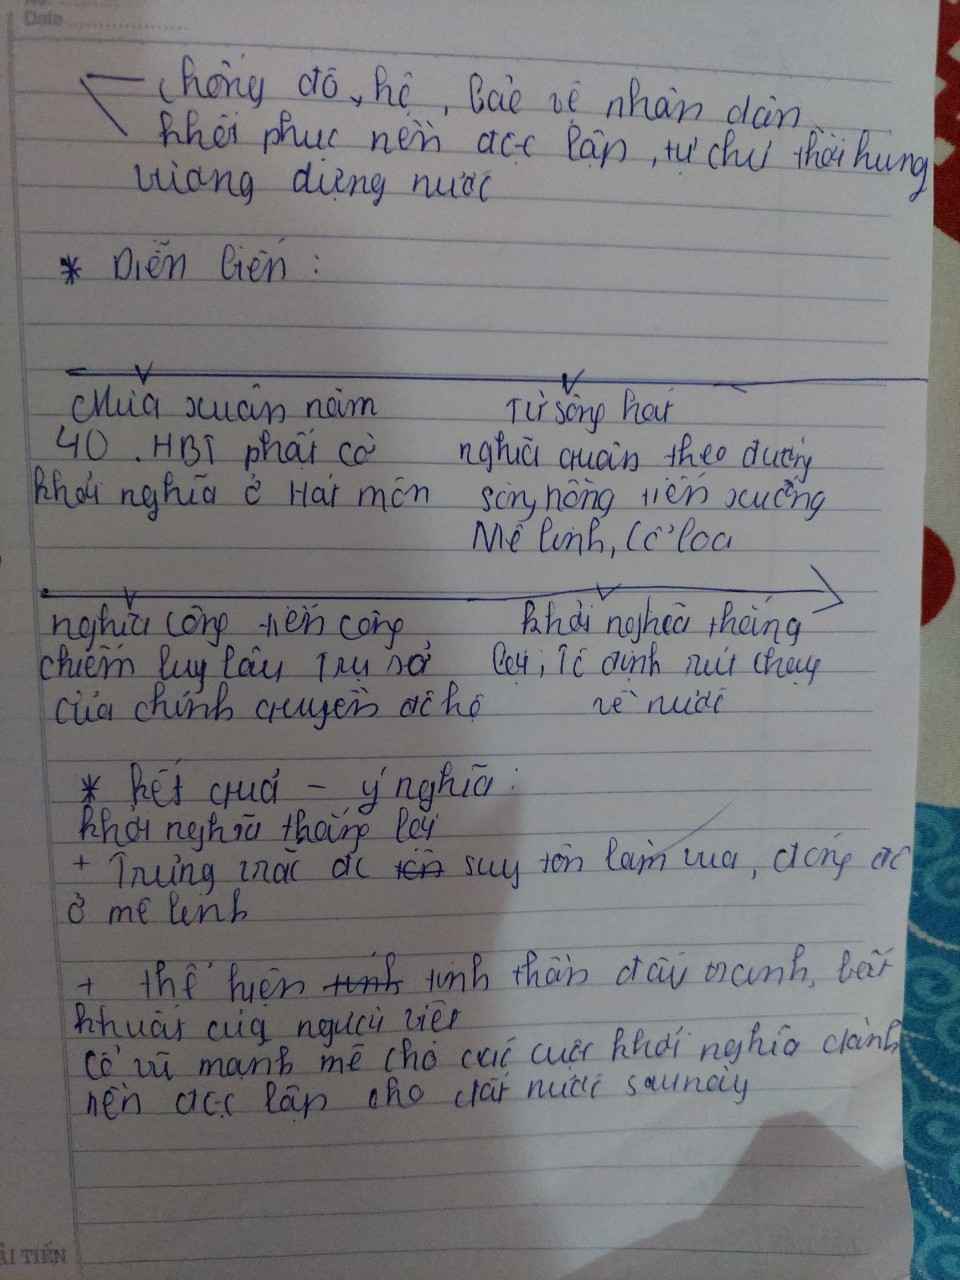 Date
chống đô hộ, bảo vệ nhân dân
khôi phục nền độc lập, tự chủ thời hùng
vương dựng nước
* Diễn biến :
Mùa xuân năm
40. HBT phất cờ
khởi nghĩa ở Hát môn
Từ sông hát
nghĩa quân theo đường
sông hồng tiến xuống
Mê linh, Cổ loa
nghĩa công tiến công
chiếm luy lâu Trụ sở
của chính quyền đô hộ
khởi nghĩa thắng
lợi, Tô định rút chạy
về nước
* kết quả - ý nghĩa :
khởi nghĩa thắng lợi
+ Trưng trắc đc tôn suy tôn làm vua, đóng đô
ở mê linh
+ thể hiện tinh tinh thần đấu tranh, bất
khuất của người việt
Cổ vũ mạnh mẽ cho các cuộc khởi nghĩa dành
nền độc lập cho đất nước sau này
ẢI TIẾN